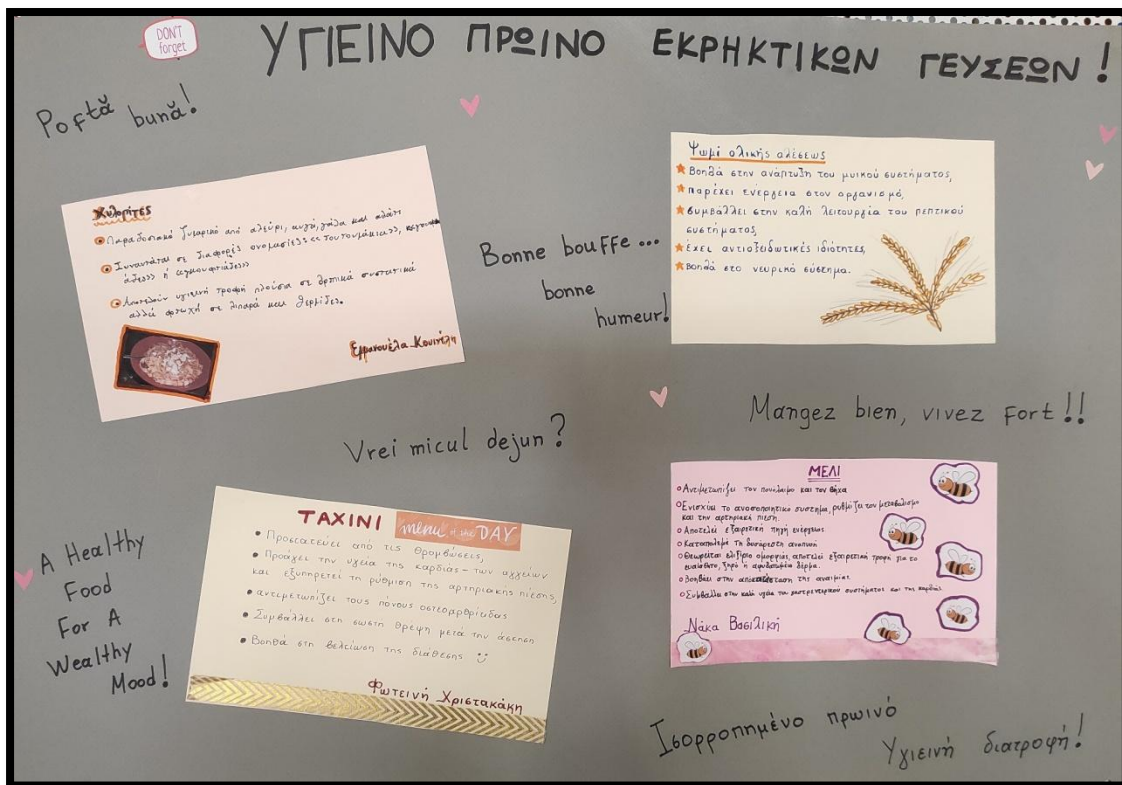 DON'T
forget
ΥΓΙΕΙΝΟ ΠΡΩΙΝΟ ΕΚΡΗΚΤΙΚΩΝ ΓΕΥΣΕΩΝ!
Poftă bună!
Χυλοπίτες
Παραδοσιακό ζυμαρικό από αλεύρι, αυγά, γάλα και αλάτι
Συναντάται σε διαφορές ονομασίες
Αποτελούν υγιεινή τροφή πλούσια σε θρεπτικά συστατικά
αλλά φτωχή σε λιπαρά και θερμίδες.
Εμμανουέλα
Bonne bouffe...
bonne
humeur!
Ψωμί ολικής αλέσεως
Βοηθά στην ανάπτυξη του μυικού συστήματος,
παρέχει ενέργεια στον οργανισμό,
συμβάλλει στην καλή λειτουργία του πεπτικού
συστήματος,
έχει αντιοξειδωτικές ιδιότητες,
βοηθά στο νευρικό σύστημα.
Vrei micul dejun?
Mangez bien, vivez fort!!
A Healthy
Food
For A
Wealthy
Mood!
ΤΑΧΙΝΙ menu of the DAY
Προστατεύει από τις θρομβώσεις,
Προάγει την υγεία της καρδιάς - των αγγείων
και εξυπηρετεί τη ρύθμιση της αρτηριακής πίεσης,
αντιμετωπίζει τους πόνους οστεοαρθρίτιδας
Συμβάλλει στη σωστή θρέψη μετά την άσκηση
Βοηθά στη βελτίωση της διάθεσης
Φωτεινή Χριστακάκη
ΜΕΛΙ
Αντιμετωπίζει τον πονόλαιμο και τον βήχα
Ενισχύει το ανοσοποιητικό σύστημα, ρυθμίζει τον μεταβολισμό
και την αρτηριακή πίεση.
Αποτελεί εξαιρετική πηγή ενέργειας
Καταπολεμά τη δυσάρεστη αναπνοή
Θεωρείται ελιξίριο ομορφιάς, αποτελεί εξαιρετική τροφή για το
ευαίσθητο, ξηρό ή αφυδατωμένο δέρμα.
Βοηθάει στην της αναιμίας
Συμβάλλει στην καλή υγεία του γαστρεντερικού συστήματος και της καρδιάς
Νάκα Βασιλική
Ισορροπημένο πρωινό
Υγιεινή διατροφή!